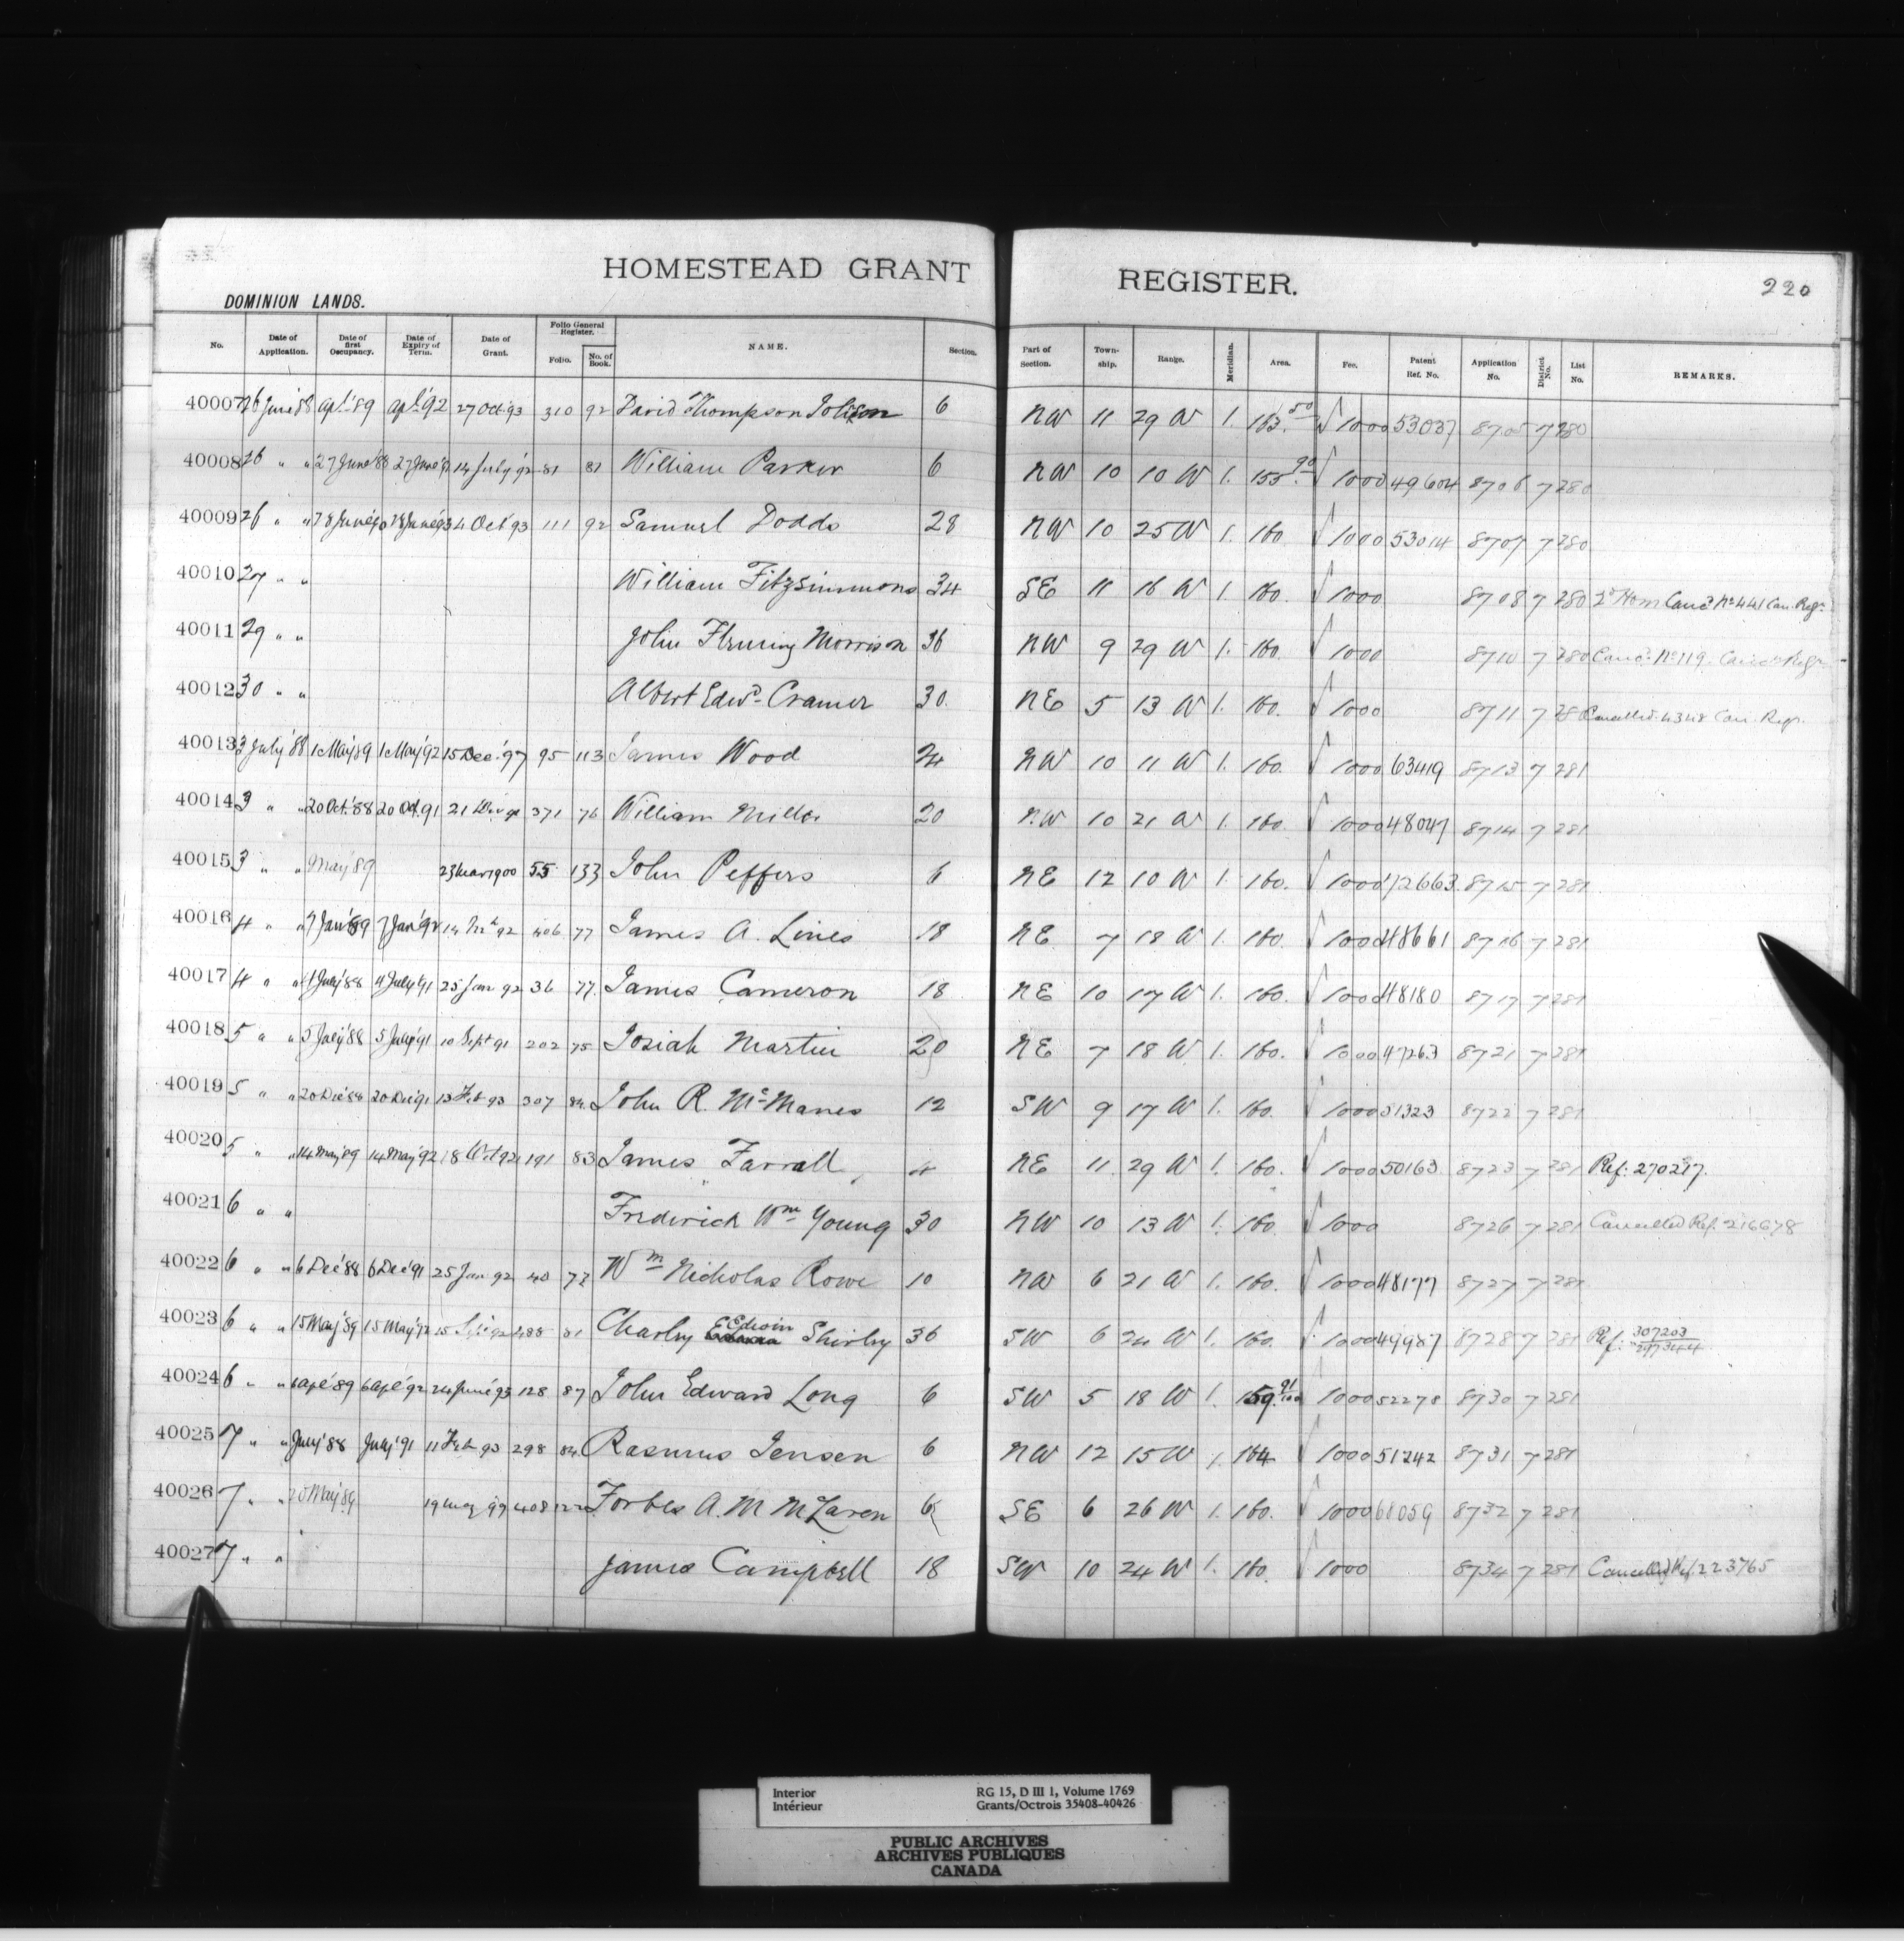 HOMESTEAD GRANT REGISTER. 220
DOMINION LANDS.
No. Date of Application. Date of first Occupancy. Date of Expiry of Term. Date of Grant. Folio General Register. Folio. No. of Book. NAME. Section. Part of Section. Township. Range. Meridian. Area. Fee. Patent Ref. No. Application No. District No. List No. REMARKS.
40007 26 June '88 apl. '89 apl. '92 27 Oct. 93 310 92 David Thompson 6 NW 11 29 W 1. 163.50 1000 53037 8705 7 280
40008 26 " " 27 June '88 27 June '91 14 July '92 81 81 William Parker 6 NW 10 10 W 1. 155.90 1000 49604 8706 7 280
40009 26 " " 28 June '90 28 June '93 4 Oct '93 111 92 Samuel Dodds 28 NW 10 25 W 1. 160 1000 53014 8707 7 280
40010 27 " " William Fitzsimmons 34 SE 11 16 W 1. 160. 1000 8708 7 280 2d Hom Canc'd No 441 Can. Regr.
40011 29 " " John Fleming Morrison 36 NW 9 29 W 1. 160. 1000 8710 7 280 Canc'd No 119 Canc'n Regr
40012 30 " " Albert Edwd. Cramer 30. NE 5 13 W 1. 160. 1000 8711 7 280 Cancelled 4348 Can. Regr.
40013 3 July '88 1 May '89 1 May '92 15 Dec. '97 95 113 James Wood 24 NW 10 11 W 1. 160. 1000 63419 8713 7 281
40014 3 " " 20 Oct. '88 20 Oct. 91 21 371 76 William Miller 20 NW 10 21 W 1. 160. 1000 48047 8714 7 281
40015 3 " " May '89 23 Mar 1900 55 133 John Peffers 6 NE 12 10 W 1. 160. 1000 72663 8715 7 281
40016 4 " " 7 Jan '89 7 Jan '92 14 Mch 92 406 77 James A. Lines 18 NE 7 18 W 1. 160. 1000 48661 8716 7 281
40017 4 " " 4 July '88 4 July '91 25 Jan 92 36 77. James Cameron 18 NE 10 17 W 1. 160. 1000 48180 8717 7 281
40018 5 " " 5 July '88 5 July '91 10 Sept 91 202 75 Josiah Martin 20 NE 7 18 W 1. 160. 1000 47263 8721 7 281
40019 5 " " 20 Dec '88 20 Dec '91 13 Feb 93 307 84 John R. McManes 12 SW 9 17 W 1. 160. 1000 51323 8722 7 281
40020 5 " " 14 May '89 14 May '92 18 Oct 92 191 83 James Farrall 4 NE 11 29 W 1. 160. 1000 50163 8723 7 281 Ref: 270217.
40021 6 " " Frederick Wm Young 30 NW 10 13 W 1. 160. 1000 8726 7 281 Cancelled Ref. 216678
40022 6 " " 6 Dec '88 6 Dec '91 25 Jan 92 40 77 Wm Nicholas Rowe 10 NW 6 21 W 1. 160. 1000 48177 8727 7 281
40023 6 " " 15 May '89 15 May '92 15 Sept 92 488 81 Charley Edwin Shirley 36 SW 6 24 W 1. 160. 1000 49987 8728 7 281 Ref: 307203 297344
40024 6 " " 6 apl '89 6 apl '92 24 June '93 128 87 John Edward Long 6 SW 5 18 W 1. 159.91/100 1000 52278 8730 7 281
40025 7 " " July '88 July '91 11 Feb 93 298 84 Rasmus Jensen 6 NW 12 15 W 1. 164 1000 51242 8731 7 281
40026 7 " " 20 May '89 19 '99 408 122 Forbes A. M McLaren 6 SE 6 26 W 1. 160. 1000 68059 8732 7 281
40027 7 " " James Campbell 18 SW 10 24 W 1. 160. 1000 8734 7 281 Cancelled Ref. 223765
Interior RG 15, D III 1, Volume 1769
Intérieur Grants/Octrois 35408-40426
PUBLIC ARCHIVES
ARCHIVES PUBLIQUES
CANADA